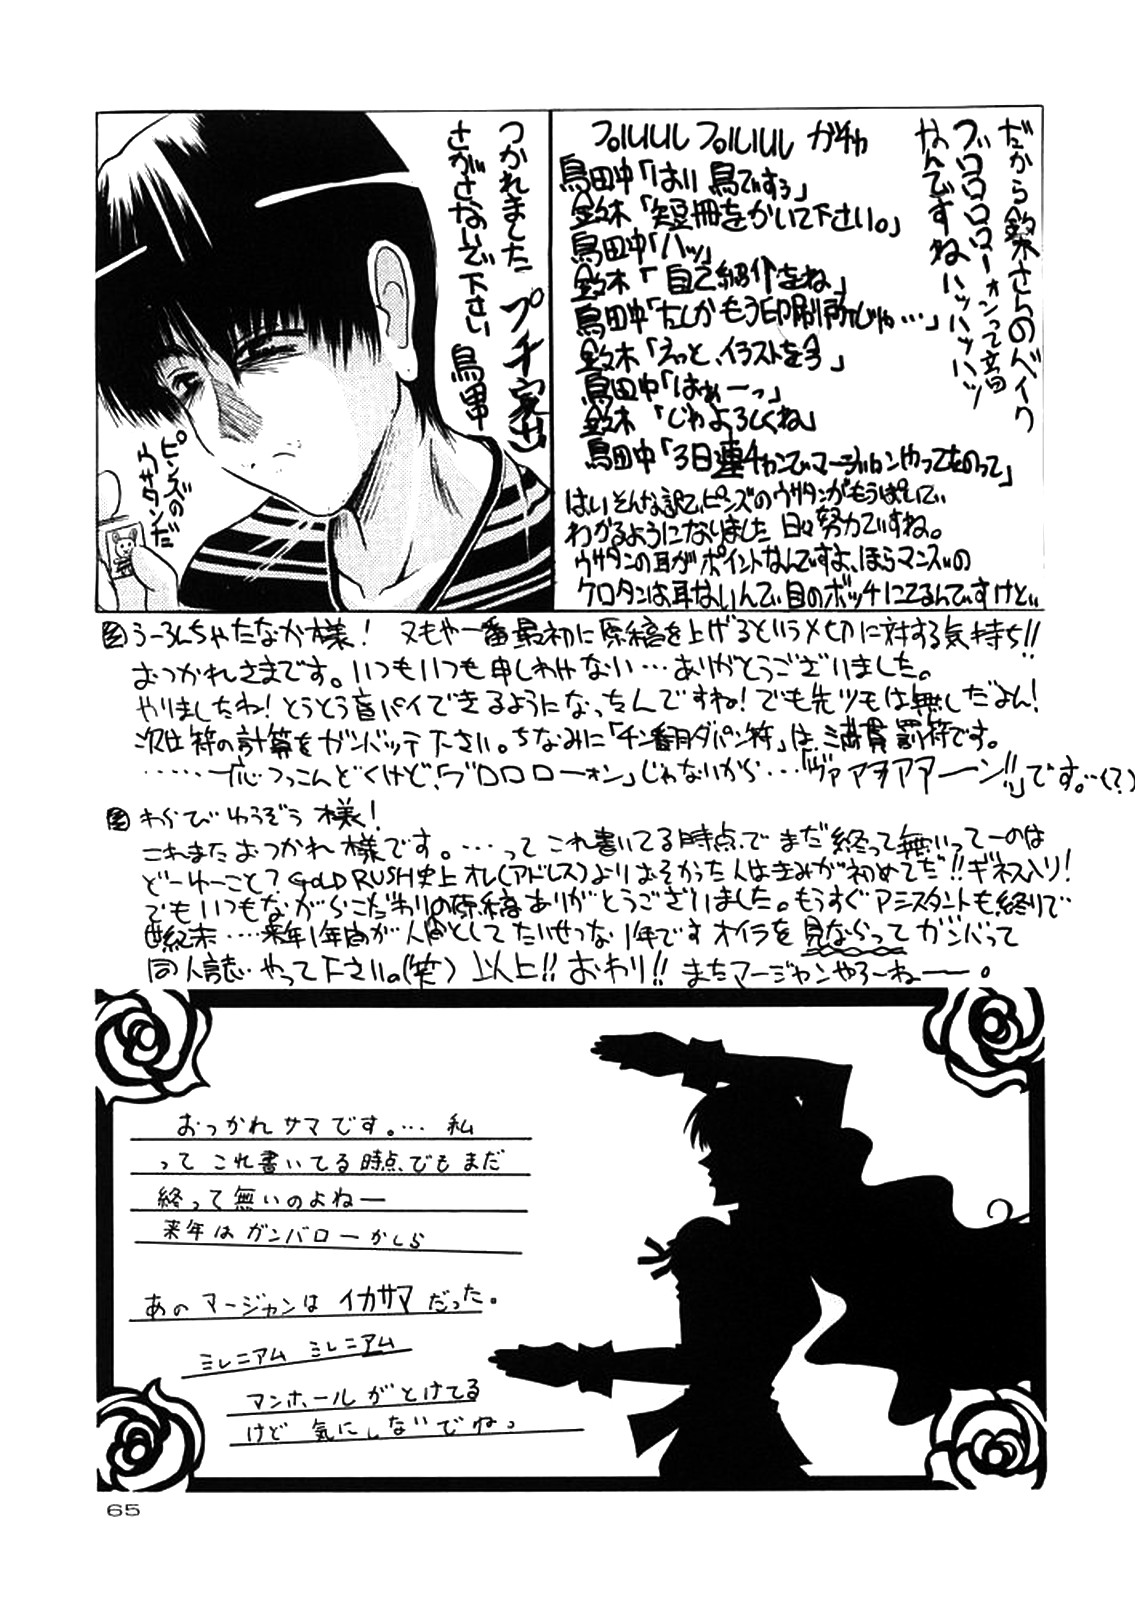 だから鈴木さんのバイク
ブロロロローォンって音
なんですねハッハッハッ
プルルルル プルルルル ガチャ
鳥田中「はい 鳥ですぅ」
鈴木「短冊をかいて下さい。」
鳥田中「ハッ」
鈴木「自己紹介をね」
鳥田中「たしかもう印刷所じゃ…」
鈴木「えっと、イラストを今」
鳥田中「はぁーっ」
鈴木「じゃよろしくね」
鳥田中「3日連チャンでマージャンやってたのって」
はいそんな訳でピンズのウサタンがもうぱいで
わかるようになりました 日々努力ですね。
ウサタンの耳がポイントなんですよ、ほらマンズの
ケロタンは耳ないんで目のポッチにてるんですけど
つかれました プチ家出
さがさないで下さい 鳥田中
ピンズの
ウサタンだ
うーろんちゃたなか様! 又もや一番最初に原稿を上げるという〆切に対する気持ち!!
おつかれさまです。いつもいつも申しわけない…ありがとうございました。
やりましたね!とうとう盲パイできるようになったんですね!でも先ヅモは無しだよん!
次は符の計算をガンバッテ下さい。ちなみに「チン 符」は、満貫罰符です。
……一応つっこんどくけど、「ブロロローォン」じゃないから…「ヴァアヲアアーン!!」です…(?)
わらびゆうぞう様!
これまたおつかれ様です。…ってこれ書いてる時点でまだ終って無いって一のは
どーゆーこと?GOLD RUSH史上オレ(アドレス)よりおそかった人はきみが初めてだ!!ギネス入り!
でもいつもながらこだわりの原稿ありがとうございました。もうすぐアシスタントも終りで
世紀末…来年1年間が人間としてたいせつな1年です オイラを見ならってガンバって
同人誌やって下さい。(笑) 以上!! おわり!! またマージャンやろーねー。
おつかれサマです。… 私
って これ書いてる時点でもまだ
終って無いのよねー
来年はガンバローかしら
あの マージャンは イカサマだった。
ミレニアム ミレニアム
マンホールがとけてる
けど 気にしないでねっ
65